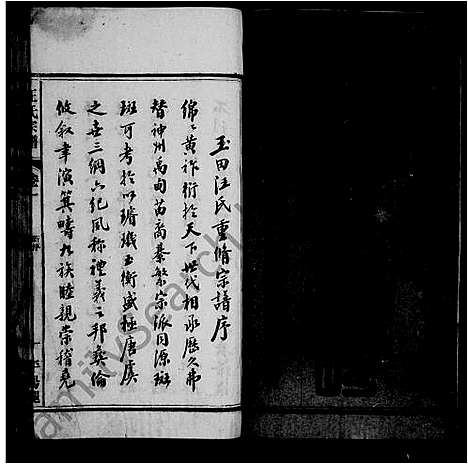 玉田汪氏重脩宗譜序
綿〻黃祚衍於天下世代相承歷久弗
替神州禹甸苗裔綦繁宗派同源斑
斑可考於以璿璣玉衡盛極唐虞
之世三綱六紀風称禮義之邦彜倫
攸叙聿演箕疇九族睦親崇稽堯
汪氏宗譜